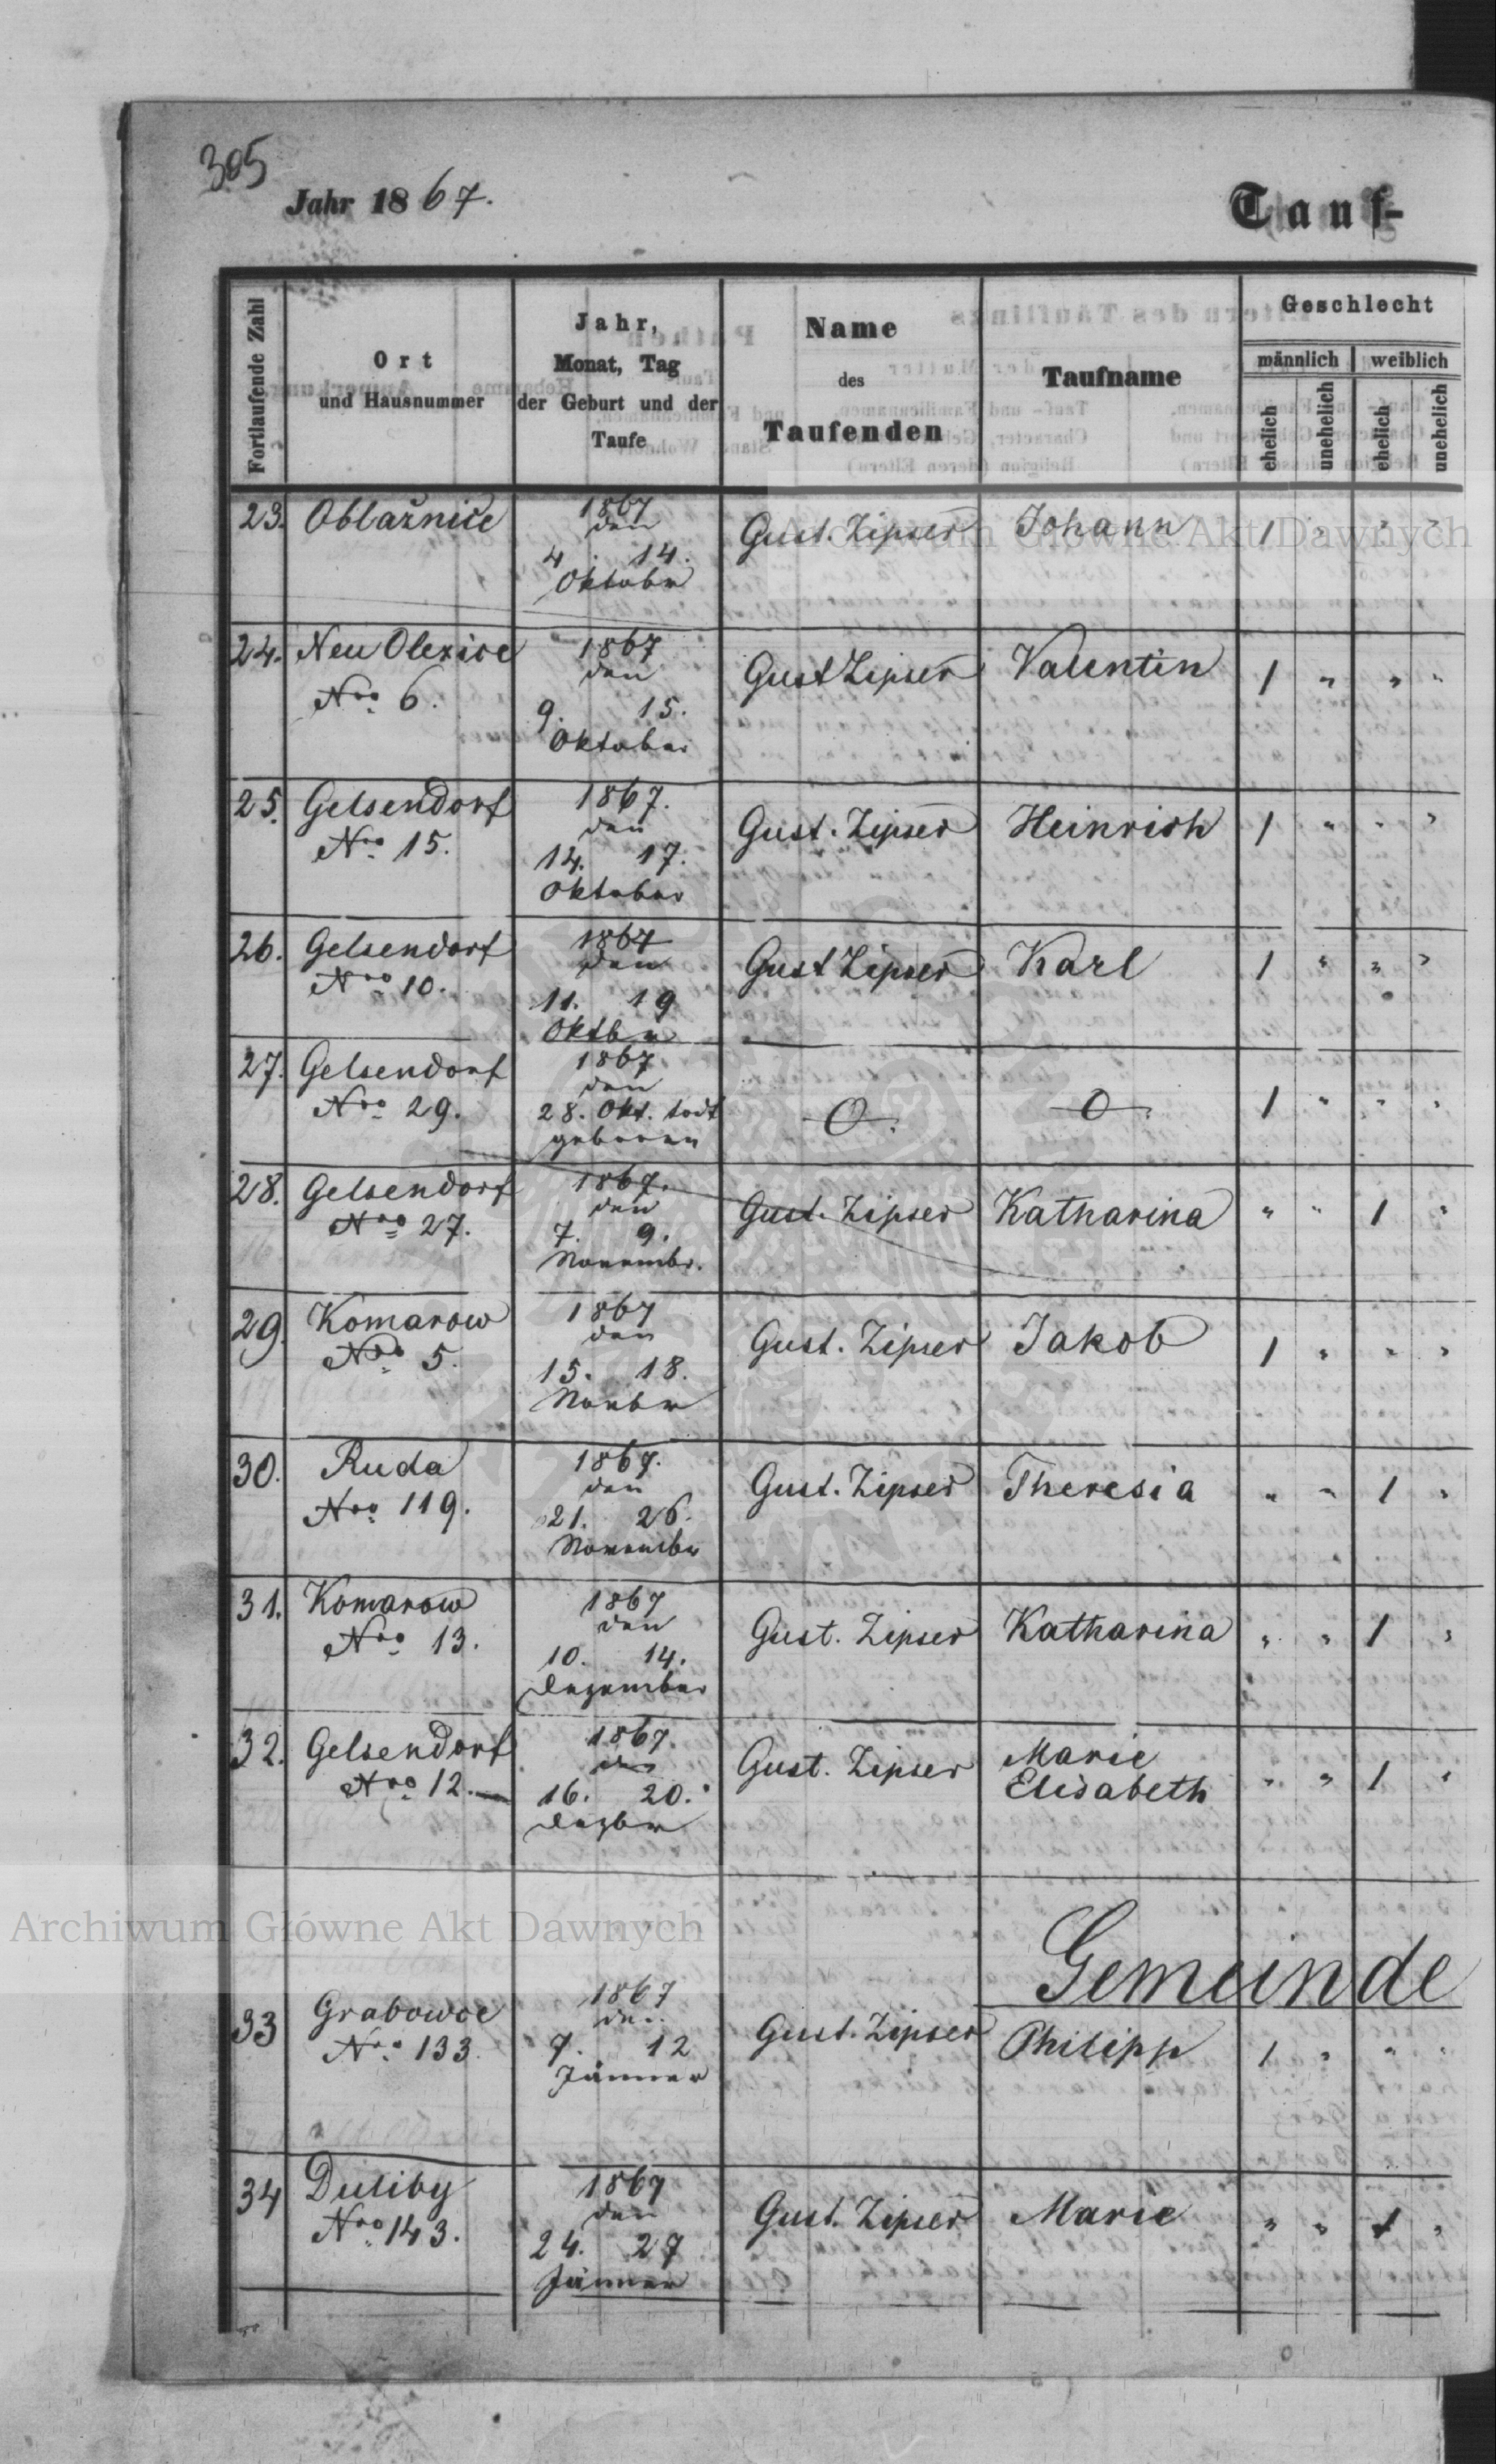 305
Jahr 1867.
Tauf-
Fortlaufende Zahl
Ort
und Hausnummer
Jahr,
Monat, Tag
der Geburt und der
Taufe
Name
des
Taufenden
Taufname
Geschlecht
männlich
weiblich
ehelich
unehelich
ehelich
unehelich
23. Oblaźnice
1867
den
4. 14.
Oktober
Gust. Zipser
Johann
1 " " "
24. Neu Olexice
Nro 6.
1867
den
9. 15.
Oktober
Gust Zipser
Valentin
1 " " "
25. Gelsendorf
Nro 15.
1867.
den
14. 17.
Oktober
Gust. Zipser
Heinrich
1 " " "
26. Gelsendorf
Nro 10.
1867
den
11. 19
Oktbr
Gust Zipser
Karl
1 " " "
27. Gelsendorf
Nro 29.
1867
den
28. Okt. todt
geboren
O.
O.
1 " " "
28. Gelsendorf
Nro 27.
1867.
den
7. 9.
Novembr.
Gust. Zipser
Katharina
" " 1 "
29. Komarow
Nro 5.
1867
den
15. 18.
Novbr
Gust. Zipser
Jakob
1 " " "
30. Ruda
Nro 119.
1867.
den
21. 26.
November
Gust. Zipser
Theresia
" " 1 "
31. Komarow
Nro 13.
1867
den
10. 14.
Dezember
Gust. Zipser
Katharina
" " 1 "
32. Gelsendorf
Nro 12.
1867.
den
16. 20.
Dezbr
Gust. Zipser
Marie
Elisabeth
" " 1 "
Gemeinde
33 Grabowce
Nro 133.
1867
den
7. 12
Jänner
Gust. Zipser
Philipp
1 " " "
34 Duliby
Nro 143.
1867
den
24. 27
Jänner
Gust. Zipser
Marie
" " 1 "
Archiwum Główne Akt Dawnych
Archiwum Główne Akt Dawnych